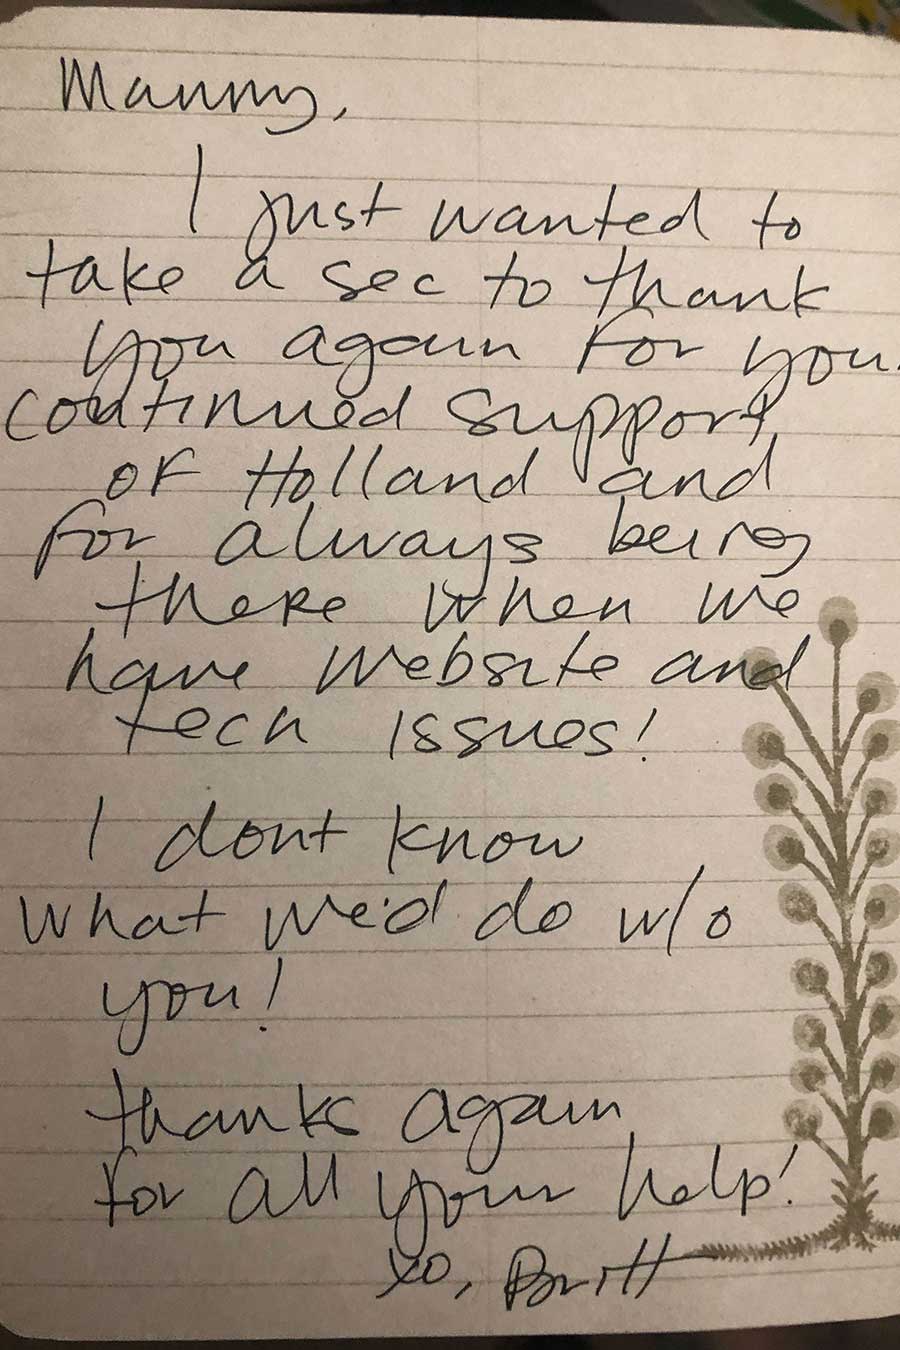 Manny,
I just wanted to
take a sec to thank
you again for you
continued support
of Holland and
for always being
there when we
have website and
tech issues!
I dont know
what we'd do w/o
you!
thanks again
for all your help!
xo, Britt